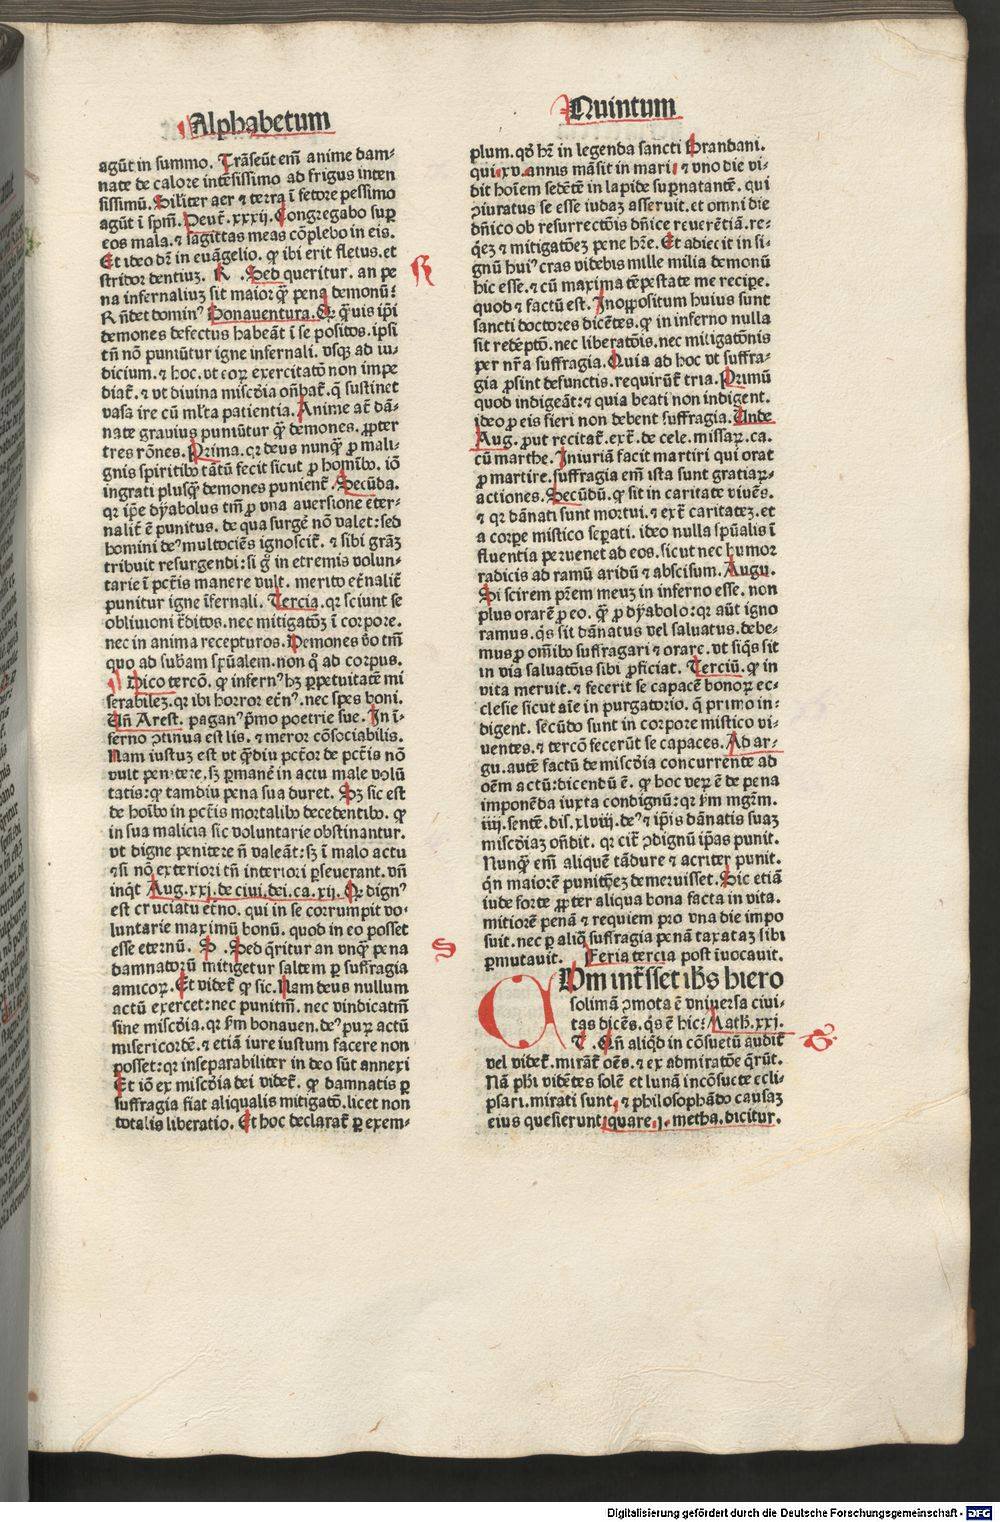 Alphabetum
agūt in summo. Trāseūt em̄ anime dam-
nate de calore intēsissimo ad frigus inten
sissimū. Siliter aer ⁊ terra ī fetore pessimo
agūt ī spm̄. Deut̄. xxxij. Congregabo sup̄
eos mala. ⁊ sagittas meas cōplebo in eis.
Et ideo dr̄ in euāgelio. ꝙ ibi erit fletus. et
stridor dentiuꝫ. R . Sed queritur. an pe
na infernaliuꝫ sit maior q̄ꝫ pena demonū:
Rn̄det dominꝰ Bonauentura. Qꝛ q̄ꝫuis ip̄i
demones defectus habeāt ī se positos. ipsi
tn̄ nō puniūtur igne infernali. vsqꝫ ad iu-
dicium. ⁊ hoc. vt eoꝝ exercitatō non impe
diat̄. ⁊ vt diuina miscdia on̄dat̄. q̄ sustinet
vasa ire cū ml̄ta patientia. Anime at̄ dā-
nate grauius puniūtur q̄ꝫ demones. ꝓpter
tres rōnes. Prima. qꝛ deus nunqꝫ̄ ꝓ mali-
gnis spiritibꝰ tātū fecit sicut ꝓ homībꝰ. iō
ingrati plusqꝫ̄ demones punient̄. Secūda.
qꝛ ip̄e dyabolus tm̄ ꝓ vna auersione eter-
nalit̄ ē punitus. de qua surgē nō valet: sed
homini deꝰ multociēs ignoscit̄. ⁊ sibi grāꝫ
tribuit resurgendi: si g̊ in etremis volun-
tarie ī pct̄is manere vult. merito et̄nalit̄
punitur igne īfernali. Tercia. qꝛ sciunt se
obliuioni t̄ditos. nec mitigatōꝫ ī corpore.
nec in anima recepturos. Demones v̄o tm̄
quo ad sub̄am sp̄ualem. non q̄ ad corpus.
Dico tercō. ꝙ infernꝰ hꝫ ꝑpetuitatē mi
serabileꝫ. qꝛ ibi horror et̄nꝰ. nec spes boni.
Un̄ Arest. paganꝰ p̄mo poetrie sue. In ī-
ferno ↄtinua est lis. ⁊ meror cōsociabilis.
Nam iustuꝫ est vt q̄ꝫdiu pctōr de pct̄is nō
vult penitere, sꝫ ꝑmanē in actu male volū
tatis: ꝙ tamdiu pena sua duret. Sꝫ sic est
de hoībꝰ in pct̄is mortalibꝰ decedentibꝰ. ꝙ
in sua malicia sic voluntarie obstinantur.
vt digne penitere n̄ valeāt: sꝫ ī malo actu
⁊ si nō exteriori tn̄ interiori ꝑseuerant. vn̄
inqt Aug. xxj. de ciui. dei. ca. xij. Qꝛ dignꝰ
est cruciatu et̄no. qui in se corrumpit vo-
luntarie maximū bonū. quod in eo posset
esse eternū. S . Sed q̄ritur an vnqꝫ̄ pena
damnatorū mitigetur saltem ꝑ suffragia
amicoꝝ. Et videt̄ ꝙ sic. Nam deus nullum
actū exercet: nec punitm̄. nec vindicatm̄
sine miscdia. qꝛ s̄m bonauen. deꝰ puꝝ actū
misericordē. ⁊ etiā iure iustum facere non
posset: qꝛ inseparabiliter in deo sūt annexi
Et iō ex miscdia dei videt̄. ꝙ damnatis ꝑ
suffragia fiat aliqualis mitigatō. licet non
totalis liberatio. Et hoc declarat̄ ꝑ exem-
R
S
Quintum
plum. qd̄ hr̄ in legenda sancti Brandani.
qui. xv. annis māsit in mari. ⁊ vno die vi-
dit hoīem sedētē in lapide sup̄natantē. qui
ↄiuratus se esse iudaꝫ asseruit. et omni die
dn̄ico ob resurrectōis dn̄ice reuerētiā. re-
q̄eꝫ ⁊ mitigatōeꝫ pene hr̄e. Et adiecit in si-
gnū huiꝰ cras videbis mille milia demonū
hic esse. ⁊ cū maxima tēpestate me recipe.
quod ⁊ factū est. Inoppositum huius sunt
sancti doctores dicētes. ꝙ in inferno nulla
sit redēptō. nec liberatōis. nec mitigatōnis
per nr̄a suffragia. Quia ad hoc vt suffra-
gia ꝓsint defunctis. requirūt̄ tria. Primū
quod indigeāt: ⁊ quia beati non indigent.
ideo ꝓ eis fieri non debent suffragia. Unde
Aug. ꝓut recitat̄. ext̄. de cele. missaꝝ. ca.
cū marthe. Iniuriā facit martiri qui orat
ꝓ martire. suffragia em̄ ista sunt gratiaꝝ-
actiones. Secūdū. ꝙ sit in caritate viuēs.
⁊ qꝛ dānati sunt mortui. ⁊ ext̄ caritateꝫ. et
a corpe mistico sepati. ideo nulla spūalis ī
fluentia peruenet ad eos. sicut nec humor
radicis ad ramū aridū ⁊ abscisum. Augu.
Si scirem pr̄em meuꝫ in inferno esse. non
plus orarē ꝓ eo. q̄ꝫ ꝓ dyabolo: qꝛ aūt igno
ramus. qs̄ sit dānatus vel saluatus. debe-
mus ꝓ om̄ibꝰ suffragari ⁊ orare. vt siqs̄ sit
in via saluatōis sibi ꝓficiat. Terciū. ꝙ in
vita meruit. ⁊ fecerit se capacē bonoꝝ ec-
clesie sicut aīe in purgatorio. q̄ primo in-
digent. secūdo sunt in corpore mistico vi-
uentes. ⁊ tercō fecerūt se capaces. Ad ar-
gu. autē factū de miscdia concurrente ad
oēm actū: dicendū ē. ꝙ hoc veꝝ ē de pena
imponēda iuxta condignū: qꝛ s̄m mgr̄m.
iiij. sentē. dis. xlviij. deꝰ ⁊ ip̄is dānatis suaꝫ
miscdiaꝫ on̄dit. qꝛ cit̄ ↄdignū ip̄as punit.
Nunqꝫ̄ em̄ aliquē tādure ⁊ acriter punit.
qn̄ maiorē punitōeꝫ demeruisset. Sic etiā
iude forte ꝓpter aliqua bona facta in vita.
mitiorē penā ⁊ requiem pro vna die impo
suit. nec ꝑ aliq̄ suffragia penā taxataꝫ sibi
ꝑmutauit. Feria tercia post iuocauit.
CUm int̄sset ihs hiero
solimā ↄmota ē vniuersa ciui-
tas dicēs. qs̄ ē hic: Math. xxj.
T . Qn̄ aliqd̄ in cōsuetū audit̄
vel videt̄. mirāt̄ oēs. ⁊ ex admiratōe q̄rūt.
Nā phi vidētes solē et lunā incōsuete ecli-
psari. mirati sunt, ⁊ philosophādo causaꝫ
eius quesierunt quare. j. metha. dicitur.
T
Digitalisierung gefördert durch die Deutsche Forschungsgemeinschaft - DFG